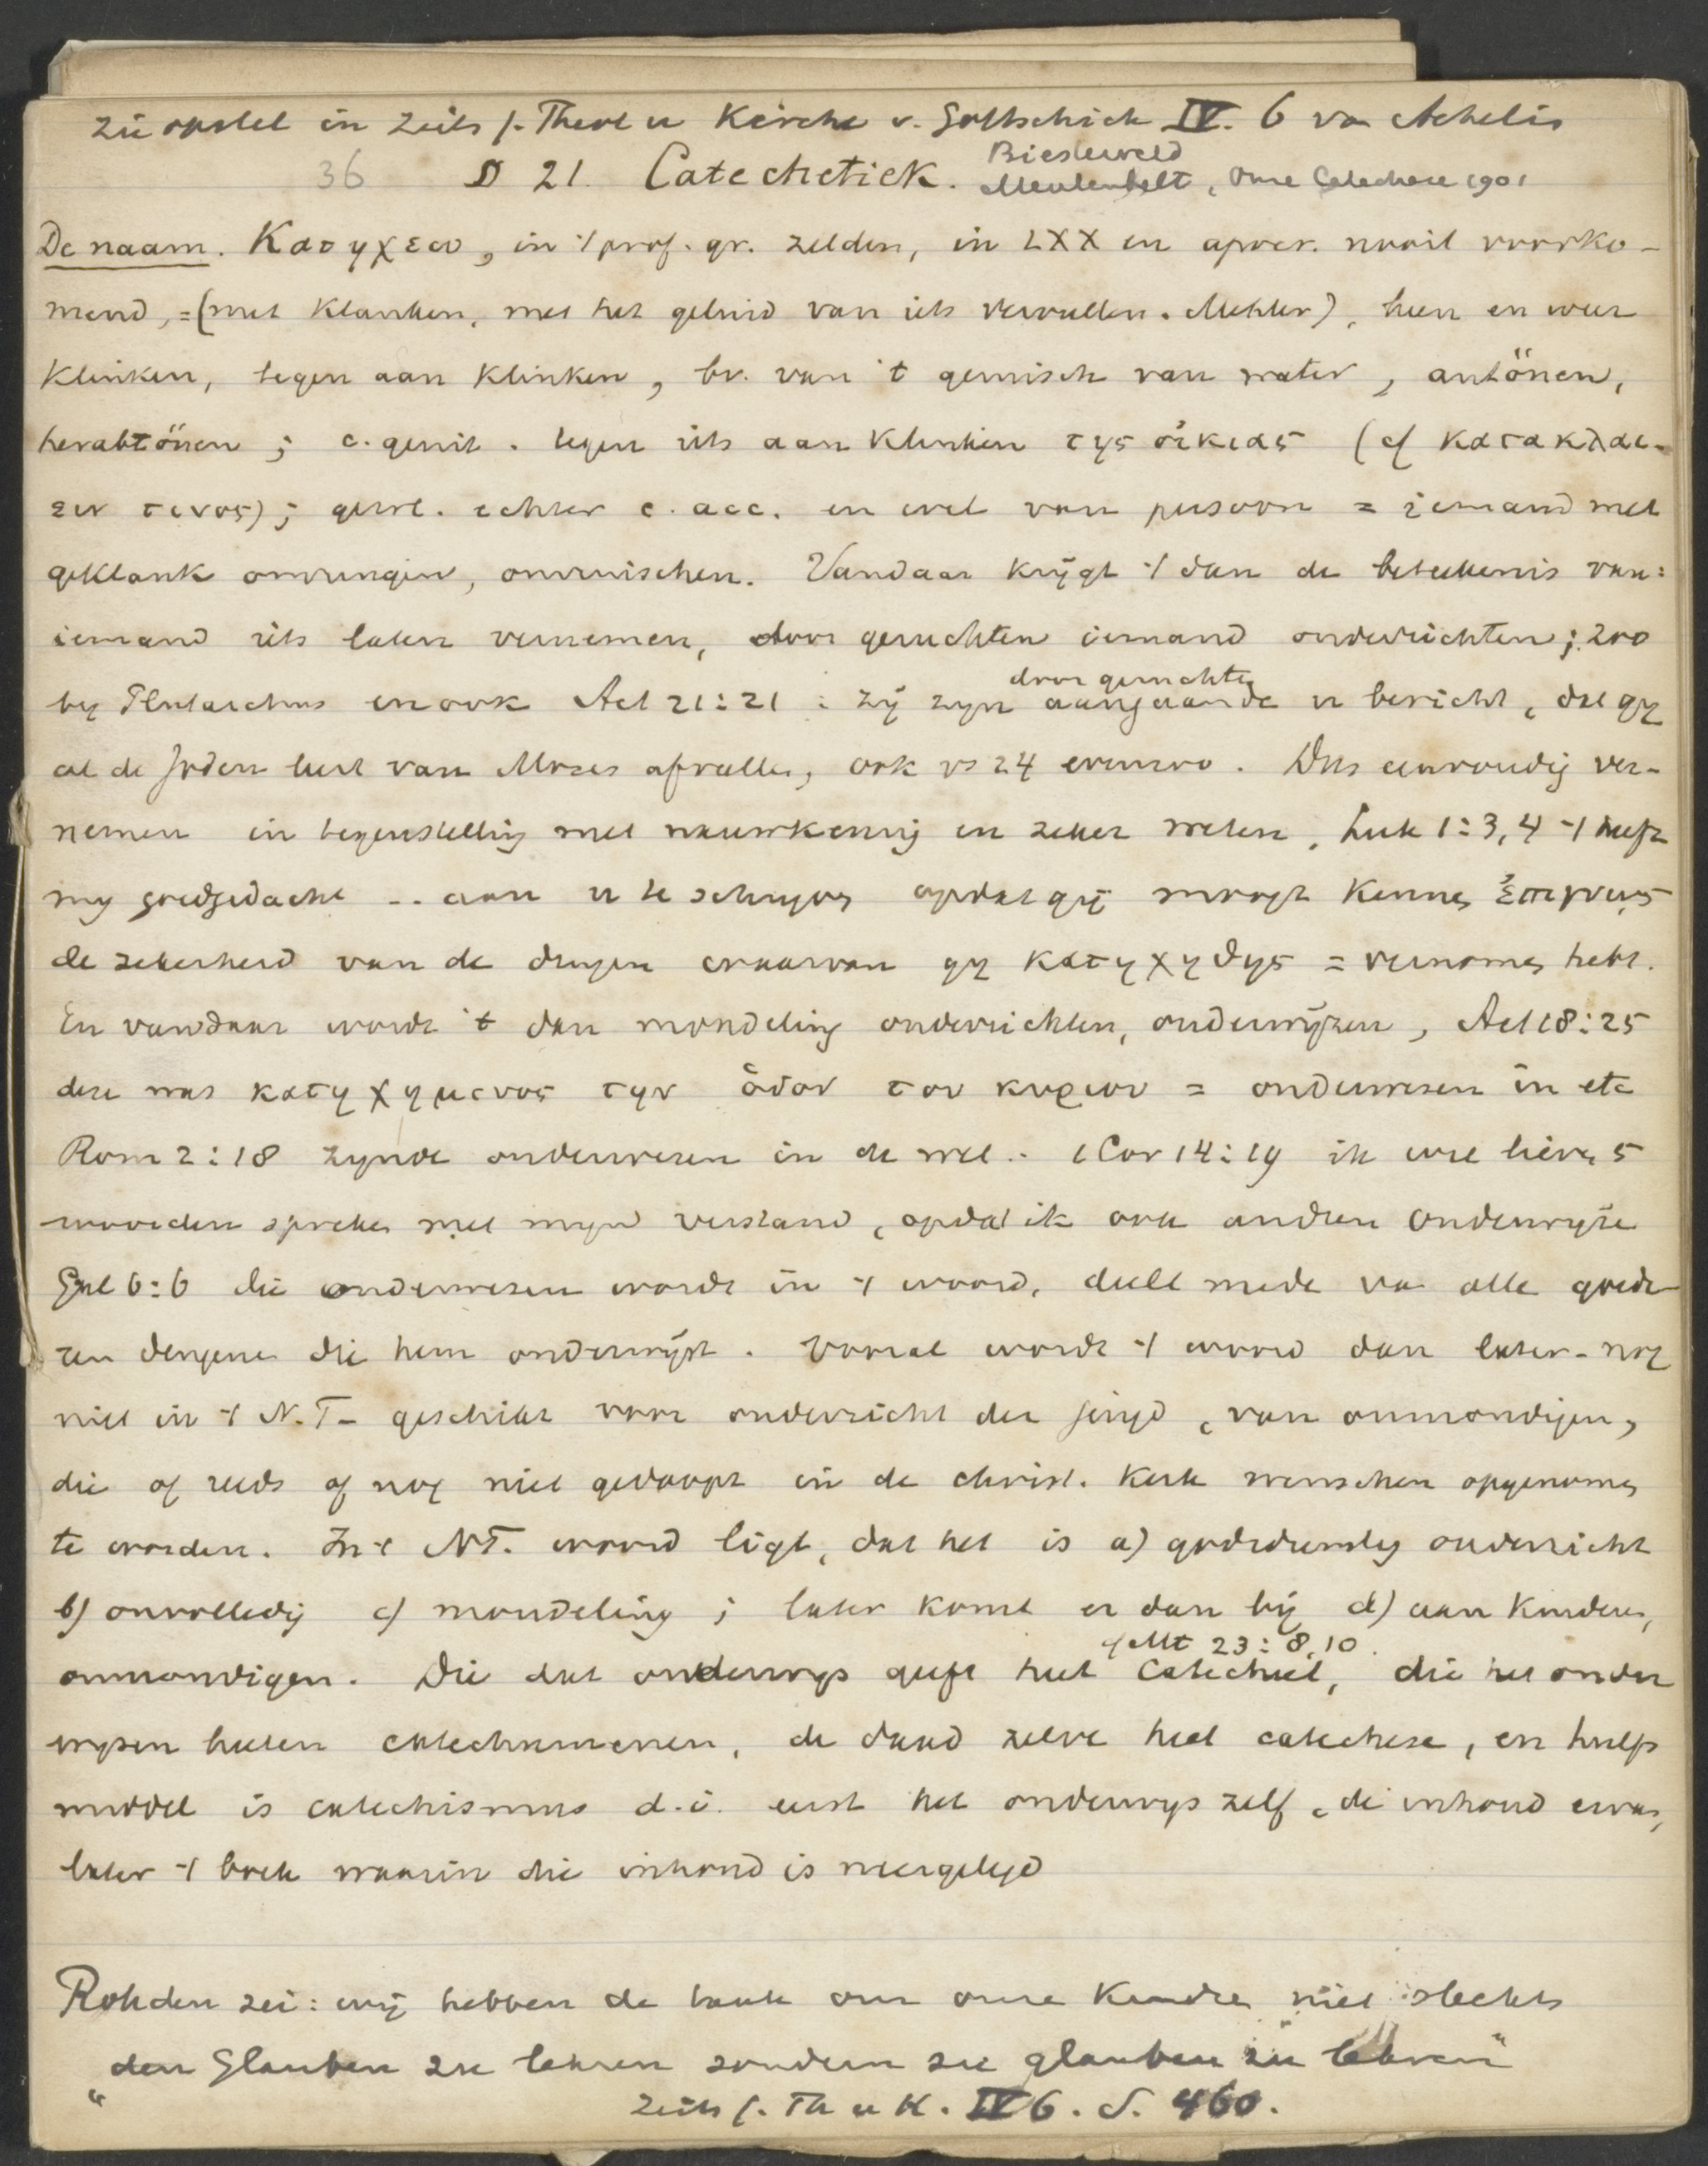 zie opstel in Zeits f. Theol u Kirche v. Gottschick IV. 6 van Achelis
36 § 21. Catechetiek. Biesterveld
Meulenbelt, Onze Catechese 1901
De naam. Κατηχεω, in 't prof. gr. zelden, in LXX en apocr. nooit voorko-
mend, = (met klanken, met het geluid van iets vervullen. Mehler), heen en weer
klinken, tegen aan klinken, bv. van 't geruisch van water, antönen,
herabtönen; c. genit. tegen iets aan klinken της οἰκιας (cf κατακλαι-
ειν τινος); gewl. echter c. acc. en wel van persoon = iemand met
geklank omringen, omruischen. Vandaar krijgt 't dan de beteekenis van:
iemand iets laten vernemen, door geruchten iemand onderrichten; zoo
by Plutarchus en ook Act 21:21 : zij zyn door geruchten aangaande u bericht, dat gy
al de Joden leert van Mozes afvallen, ook vs 24 evenzoo. Dus eenvoudig ver-
nemen in tegenstelling met nauwkeurig en zeker weten, Luk 1:3,4 't heeft
my goedgedacht -- aan u te schryven opdat gij moogt kennen ἐπιγνῳς
de zekerheid van de dingen waarvan gy κατηχηθης = vernomen hebt.
En vandaar wordt 't dan mondeling onderrichten, onderwijzen, Act 18:25
deze was κατηχημενος την ὁδον του κυριου = onderwezen in etc
Rom 2:18 zynde onderwezen in de wet.. 1 Cor 14:19 ik wil liever 5
woorden spreken met myn verstand, opdat ik ook andren onderwyze
Gal 6:6 die onderwezen wordt in 't woord, deele mede van alle goede-
ren dengene die hem onderwijst. Vooral wordt 't woord dan later - nog
niet in 't N.T - gebruikt voor onderricht der jeugd, van onmondigen,
die of reeds of nog niet gedoopt in de christ. kerk wenschen opgenomen
te worden. In 't NT. woord ligt, dat het is a) godsdienstig onderricht
b) onvolledig c) mondeling; later komt er dan bij d) aan kinderen,
onmondigen. Die dat onderwys geeft heet Catecheet, cf Mt 23:8,10. die het onder
wysen heeten catechumenen, de daad zelve heet catechese, en hulp
middel is catechismus d.i. eerst het onderwys zelf, de inhoud ervan,
later 't boek waarin die inhoud is neergelegd
Rohden zei: wij hebben de taak om onze kindren niet slechts
"den Glauben zu lehren sondern zu glauben zu lehren"
Zeits f. Th u K. IV 6. S. 460.